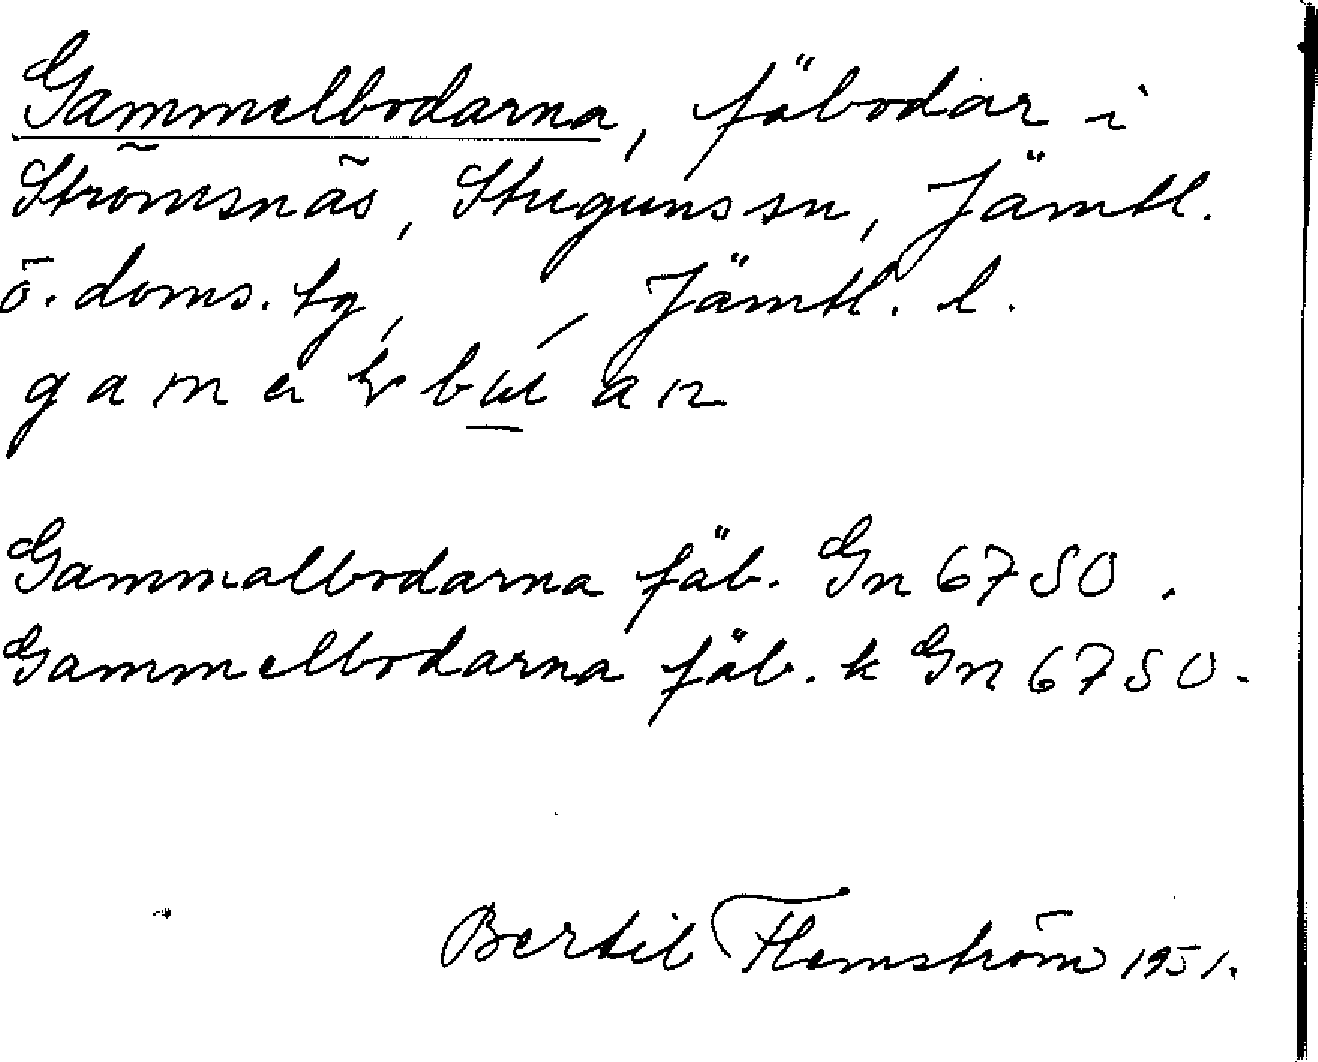 Gammelbodarna, fäbodar i
Strömsnäs, Stuguns sn, Jämtl.
ö. doms. tg, Jämtl. l.
Gammalbodarna fäb. Gn 6750.
Gammelbodarna fäb. k Gn 6750.
Bertil Flemström 1951.